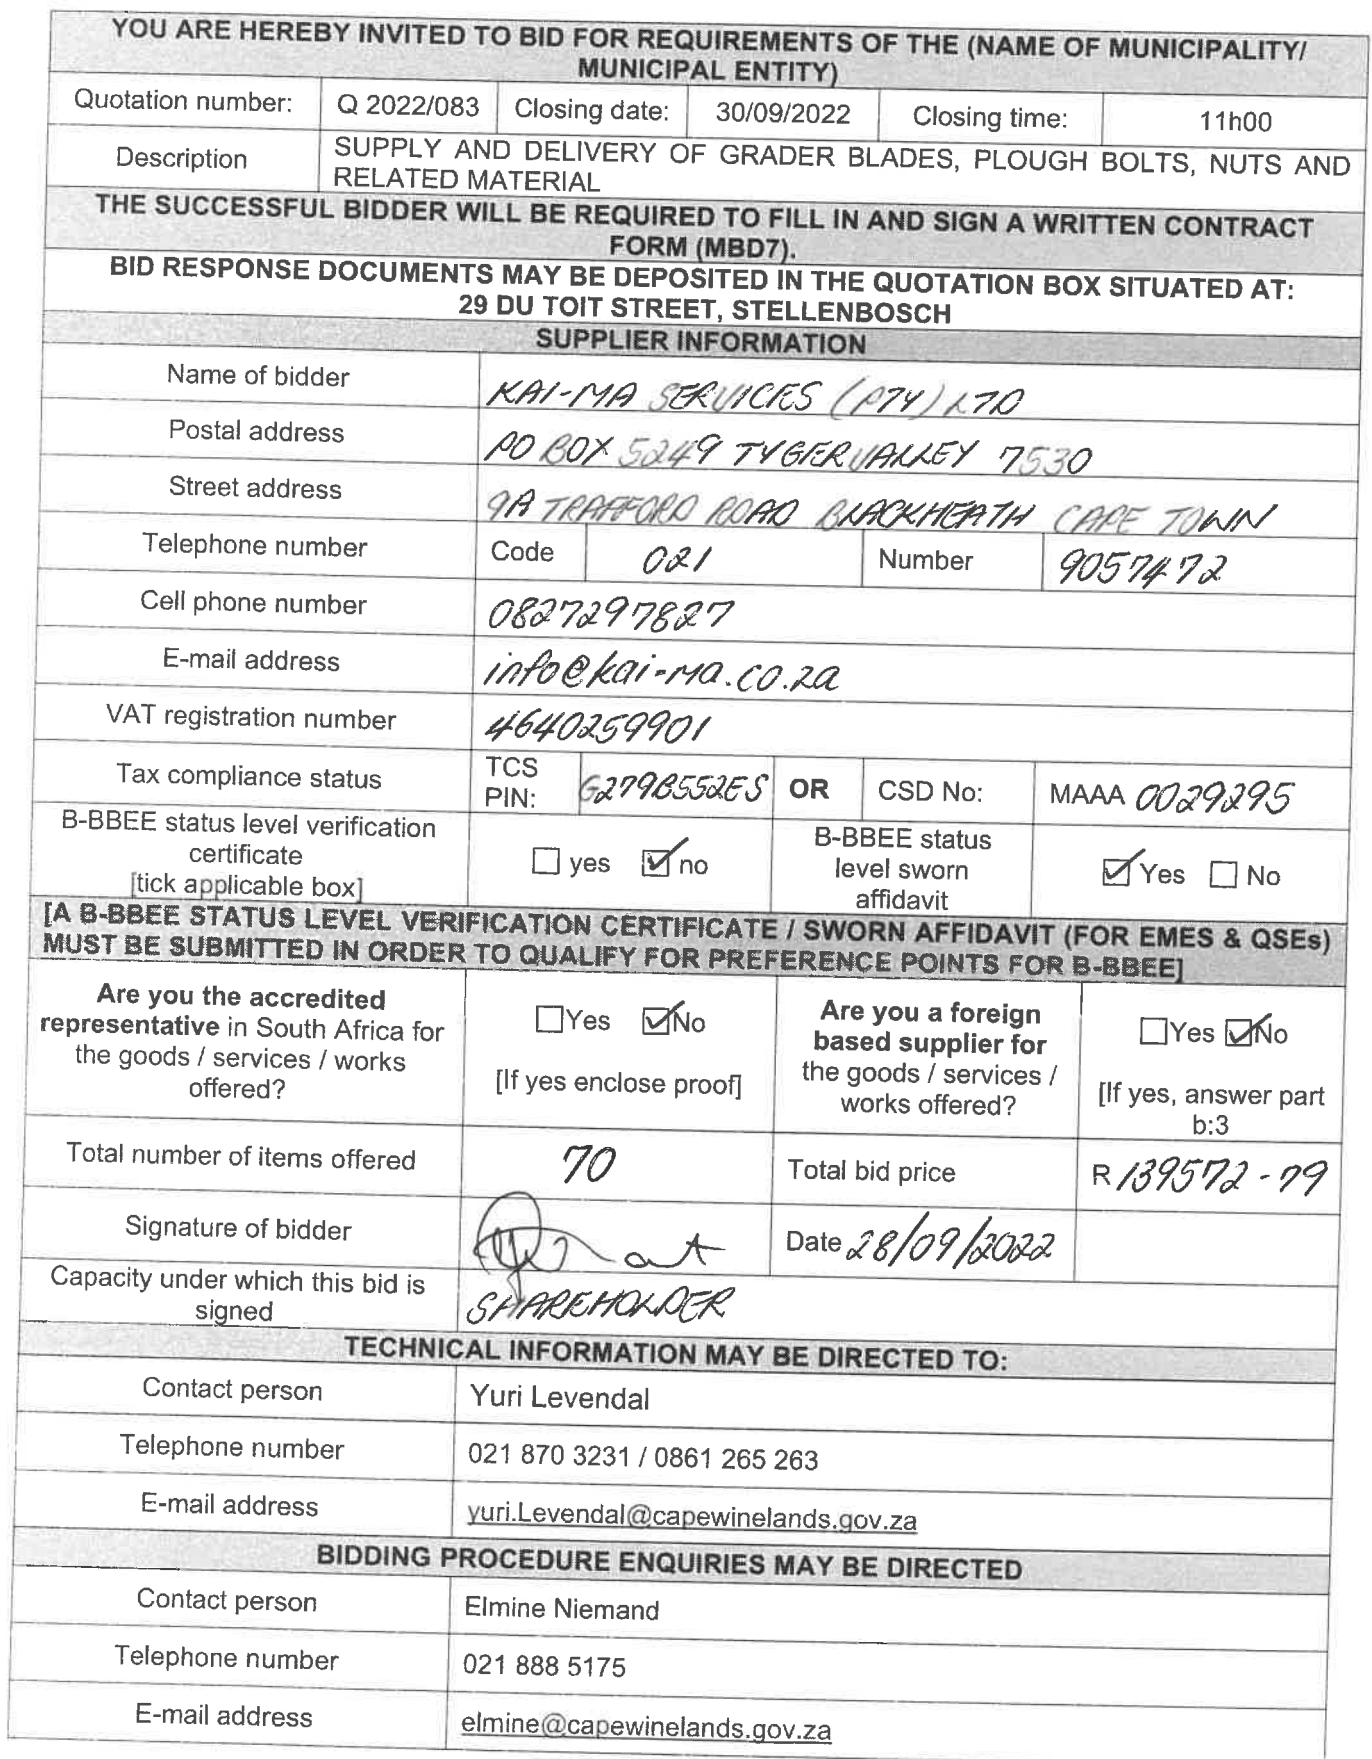 YOU ARE HEREBY INVITED TO BID FOR REQUIREMENTS OF THE (NAME OF MUNICIPALITY/
MUNICIPAL ENTITY)
Quotation number: Q 2022/083 Closing date: 30/09/2022 Closing time: 11h00
Description SUPPLY AND DELIVERY OF GRADER BLADES, PLOUGH BOLTS, NUTS AND
RELATED MATERIAL
THE SUCCESSFUL BIDDER WILL BE REQUIRED TO FILL IN AND SIGN A WRITTEN CONTRACT
FORM (MBD7).
BID RESPONSE DOCUMENTS MAY BE DEPOSITED IN THE QUOTATION BOX SITUATED AT:
29 DU TOIT STREET, STELLENBOSCH
SUPPLIER INFORMATION
Name of bidder KAI-MA SERVICES (PTY) LTD
Postal address PO BOX 5249 TYGERVALLEY 7530
Street address 9A TRAFFORD ROAD BLACKHEATH CAPE TOWN
Telephone number Code 021 Number 9057472
Cell phone number 0827297827
E-mail address info@kai-ma.co.za
VAT registration number 4640259901
Tax compliance status TCS PIN: G279B552ES OR CSD No: MAAA 0029295
B-BBEE status level verification
certificate
[tick applicable box]
yes no
B-BBEE status
level sworn
affidavit
Yes No
[A B-BBEE STATUS LEVEL VERIFICATION CERTIFICATE / SWORN AFFIDAVIT (FOR EMES & QSEs)
MUST BE SUBMITTED IN ORDER TO QUALIFY FOR PREFERENCE POINTS FOR B-BBEE]
Are you the accredited
representative in South Africa for
the goods / services / works
offered?
Yes No
[If yes enclose proof]
Are you a foreign
based supplier for
the goods / services /
works offered?
Yes No
[If yes, answer part
b:3
Total number of items offered 70 Total bid price R 139572-79
Signature of bidder Date 28/09/2022
Capacity under which this bid is
signed
SHAREHOLDER
TECHNICAL INFORMATION MAY BE DIRECTED TO:
Contact person Yuri Levendal
Telephone number 021 870 3231 / 0861 265 263
E-mail address yuri.Levendal@capewinelands.gov.za
BIDDING PROCEDURE ENQUIRIES MAY BE DIRECTED
Contact person Elmine Niemand
Telephone number 021 888 5175
E-mail address elmine@capewinelands.gov.za